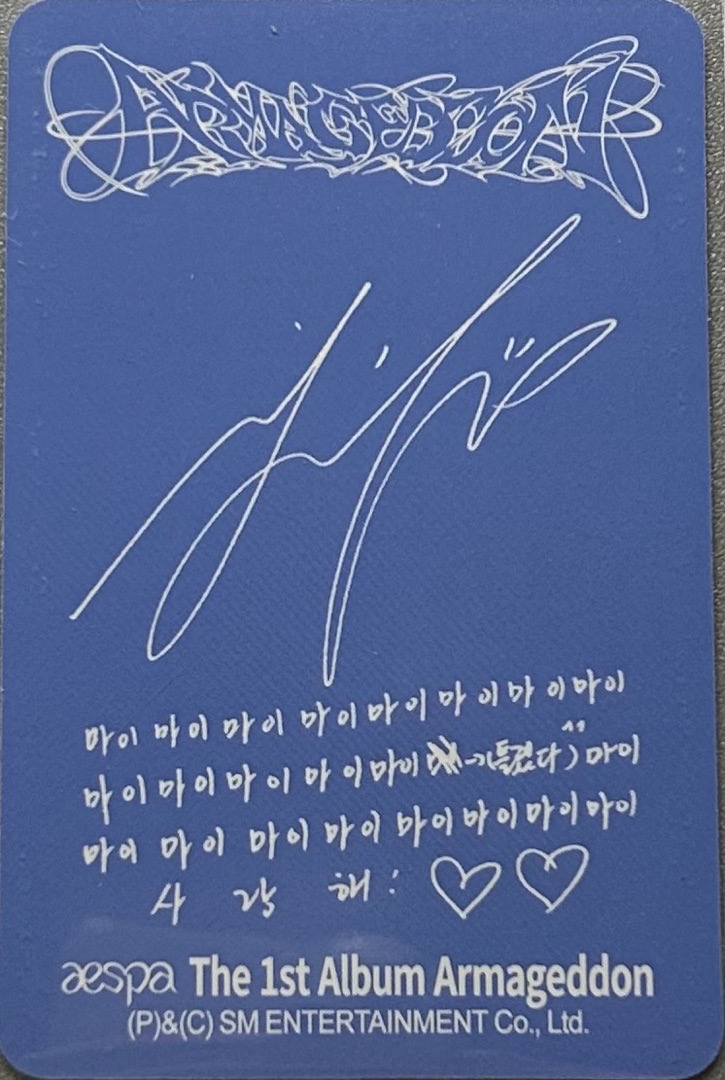 ARMAGEDDON
마이 마이 마이 마이 마이 마이 마이 마이
마이 마이 마이 마이 마이 (들켰다^^) 마이
마이 마이 마이 마이 마이 마이 마이 마이
사 랑 해 : ♡ ♡
aespa The 1st Album Armageddon
(P)&(C) SM ENTERTAINMENT Co., Ltd.